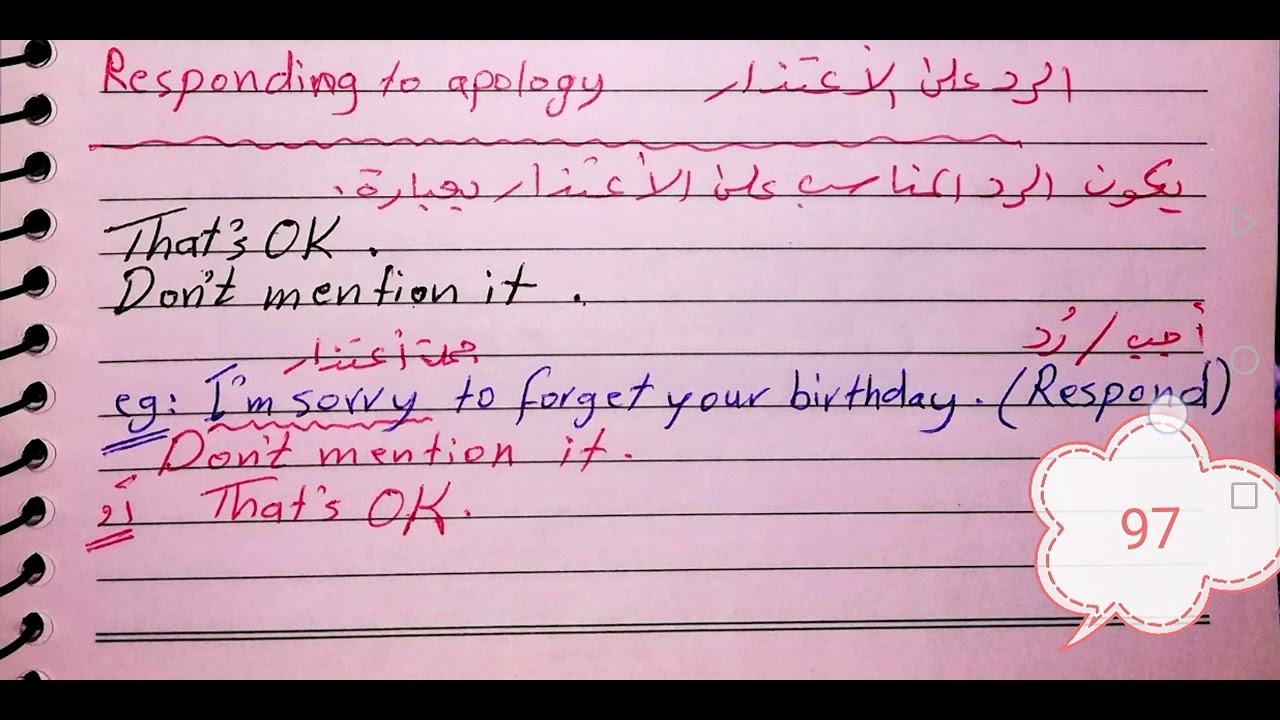 Responding to apology الرد على الأعتذار
يكون الرد المناسب على الأعتذار بعبارة.
That's OK.
Don't mention it.
جملة أعتذار أجب / رُد
eg: I'm sorry to forget your birthday. (Respond)
Don't mention it.
أو That's OK.
97